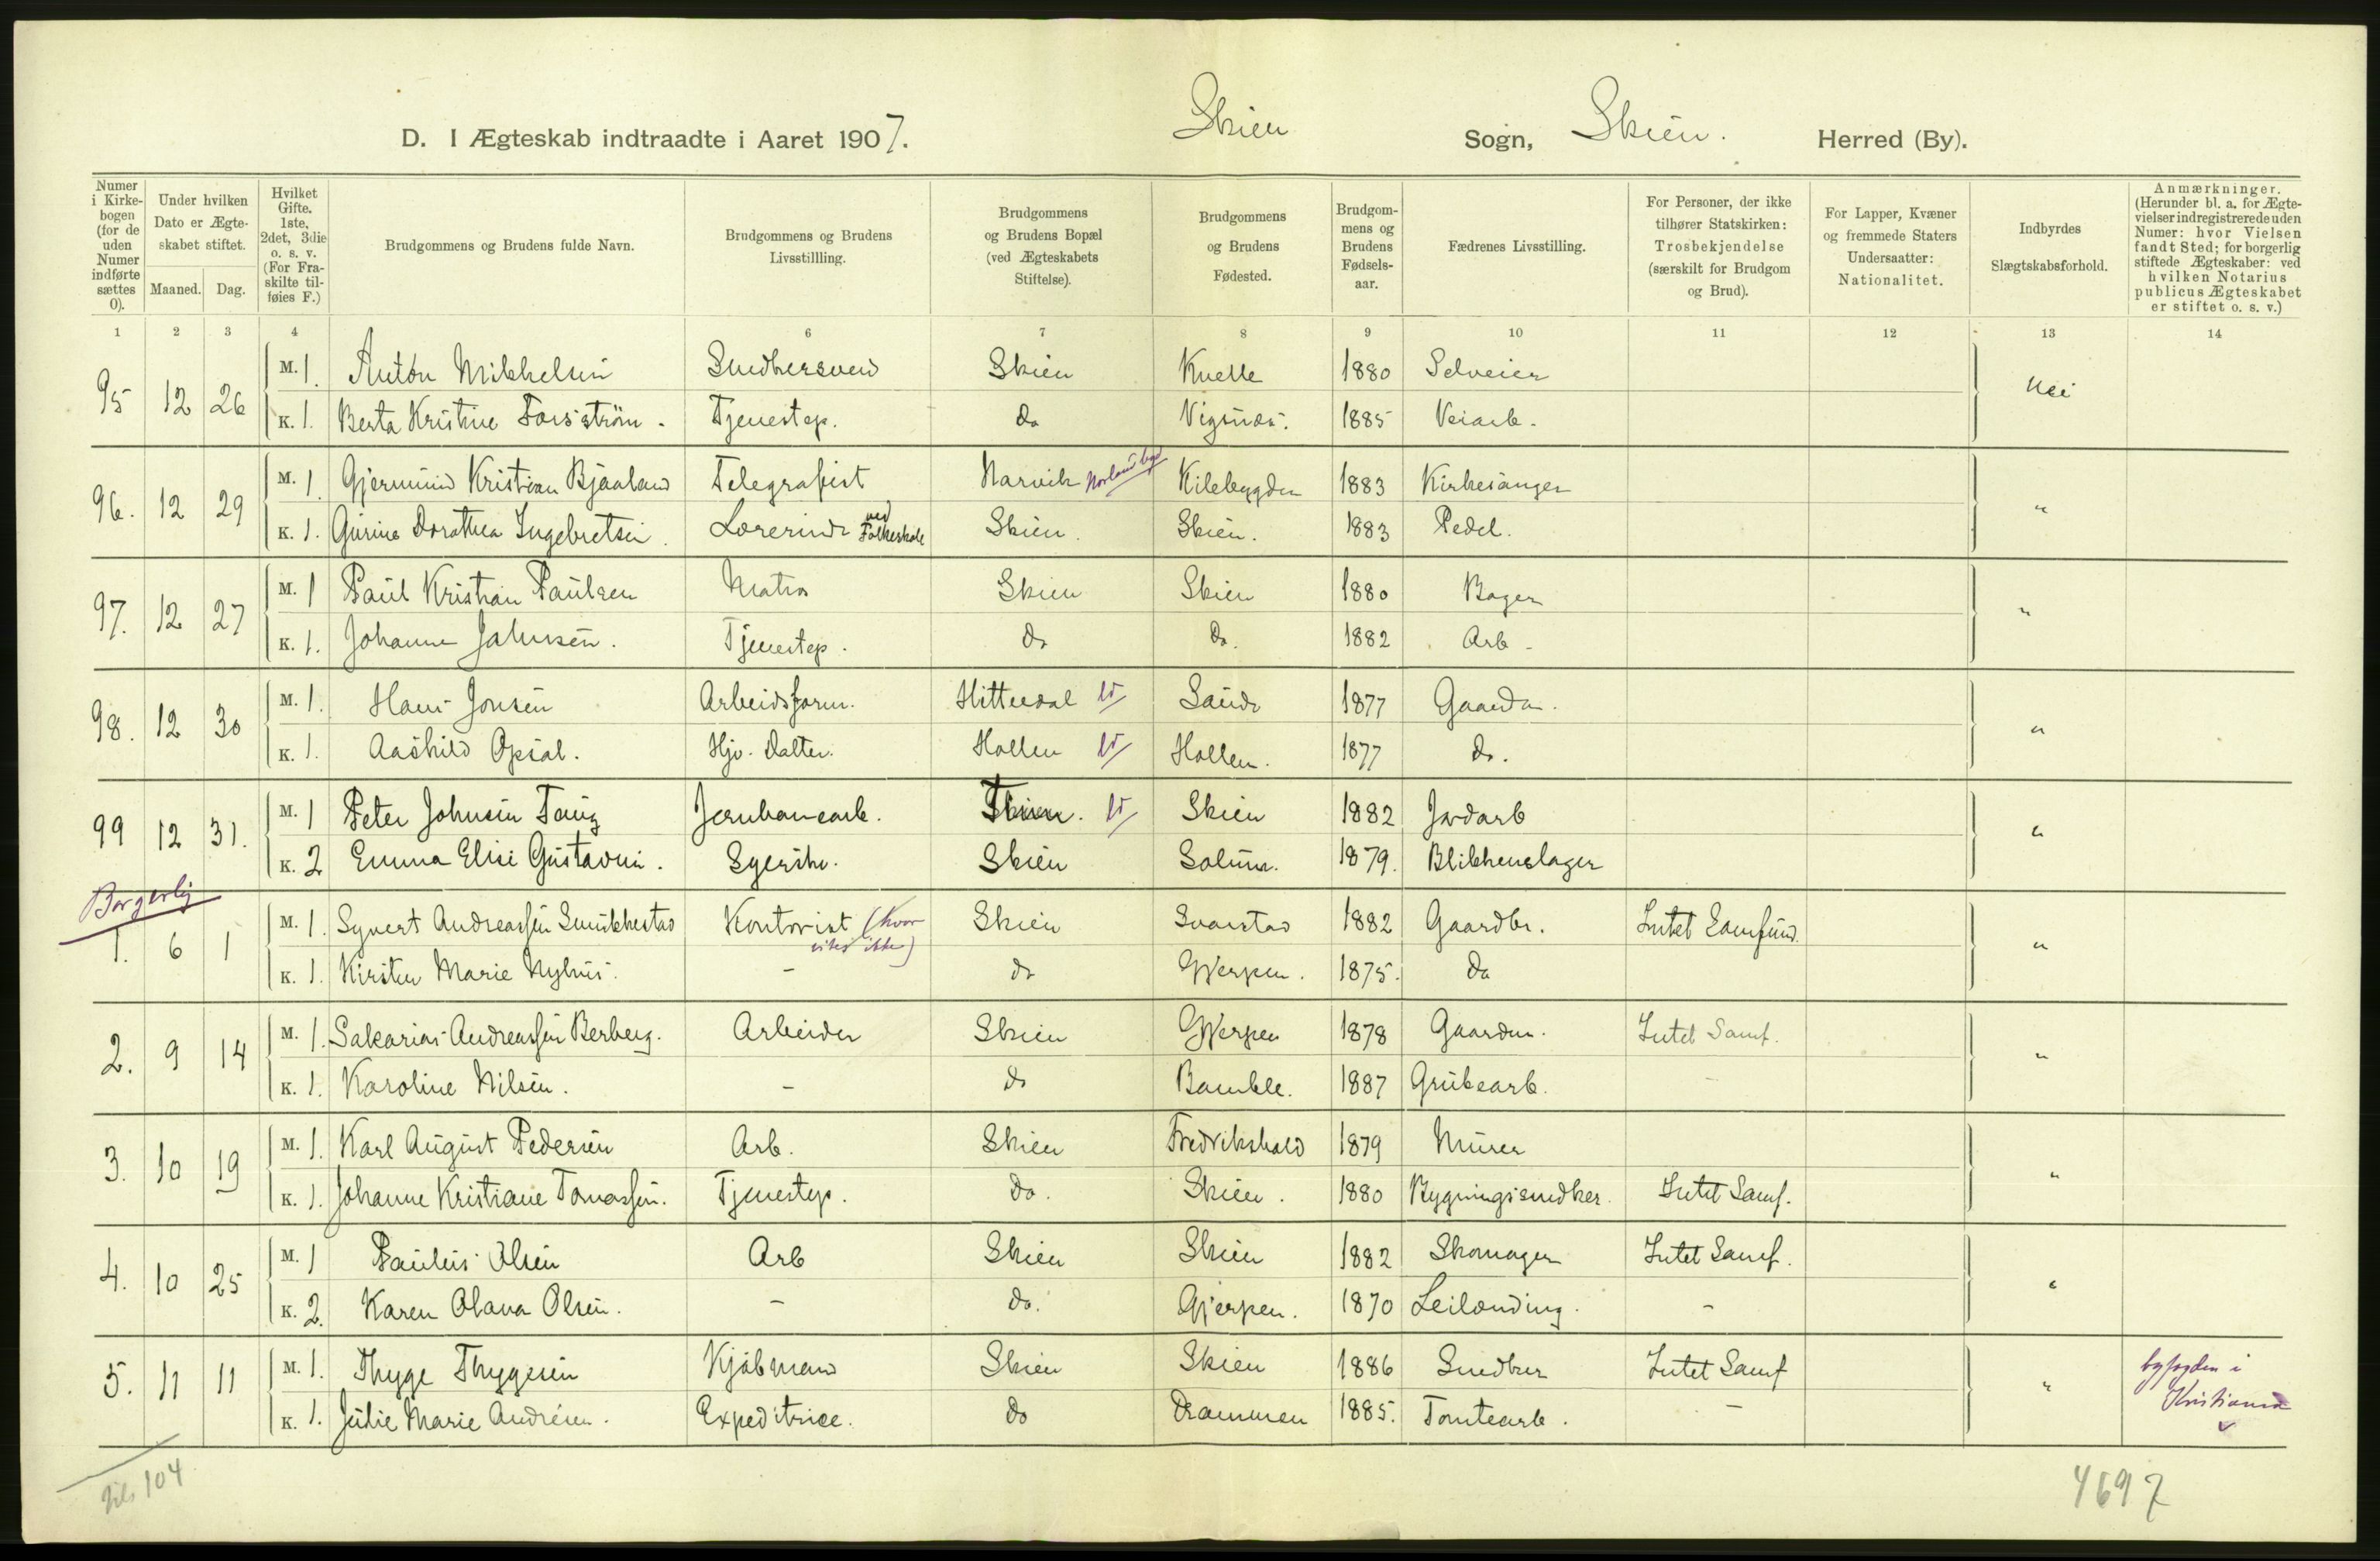 D. I Ægteskab indtraadte i Aaret 1907. Skien Sogn, Skien. Herred (By).
Numer i Kirkebogen (for de uden Numer indførte sættes 0).
Under hvilken Dato er Ægteskabet stiftet.
Maaned. Dag.
Hvilket Gifte. 1ste, 2det, 3die o. s. v. (For Fraskilte tilføies F.)
Brudgommens og Brudens fulde Navn.
Brudgommens og Brudens Livsstillling.
Brudgommens og Brudens Bopæl (ved Ægteskabets Stiftelse).
Brudgommens og Brudens Fødested.
Brudgommens og Brudens Fødselsaar.
Fædrenes Livsstilling.
For Personer, der ikke tilhører Statskirken: Trosbekjendelse (særskilt for Brudgom og Brud).
For Lapper, Kvæner og fremmede Staters Undersaatter: Nationalitet.
Indbyrdes Slægtskabsforhold.
Anmærkninger. (Herunder bl. a. for Ægtevielser indregistrerede uden Numer: hvor Vielsen fandt Sted; for borgerlig stiftede Ægteskaber: ved hvilken Notarius publicus Ægteskabet er stiftet o. s. v.)
1 2 3 4 6 7 8 9 10 11 12 13 14
95 12 26 M. 1. Anton Mikkelsen Snedkersvend Skien 1880 Selveier Nei
K. 1. Berta Kristine Forsström. Tjenestep. do Vigsnæs. 1885 Veiarb.
96. 12 29 M. 1. Gjermund Kristian Bjaaland Telegrafist Narvik Kilebygden 1883 Kirkesanger "
K. 1. Gurine Dorothea Ingebretsen. Lærerinde ved Folkeskole Skien. Skien. 1883 Pedel.
97. 12 27 M. 1 Paul Kristian Paulsen Matros Skien Skien 1880 Bager "
K. 1. Johanne Jahnsen. Tjenestep. do do. 1882 Arb.
98. 12 30 M. 1. Hans Jonsen Arbeidsform. Hitterdal Saude 1877 Gaardm. "
K. 1. Aashild Opsal. Hjv. Datter. Hollen Hollen. 1877 do.
99 12 31. M. 1 Peter Johnsen Jernbanearb. Skien 1882 Jordarb "
K. 2 Emma Elise Gustavsen. Syerske. Skien Solum. 1879. Blikkenslager
Borgerlig
1. 6 1 M. 1. Synert Andreassen Smukkestad Kontorist (hvor vides ikke) Skien Svarstad 1882 Gaardbr. Intet Samfund. "
K. 1. Kirsten Marie Nyhus. - do Gjerpen. 1875. do
2. 9 14 M. 1. Sakarias Andreassen Berberg. Arbeider Skien Gjerpen 1878 Gaardm. Intet Samf. "
K. 1. Karoline Nilsen. - do Bamble. 1887 Grubearb. -
3. 10 19 M. 1. Karl August Pedersen Arb. Skien Fredrikshald 1879 Murer "
K. 1. Johanne Kristiane Tomassen. Tjenestep. do. Skien. 1880 Bygningssnedker. Intet Samf.
4. 10 25 M. 1 Paulus Olsen Arb Skien Skien 1882 Skomager Intet Samf. "
K. 2. Karen Olava Olsen. - do. Gjerpen. 1870 Leilænding. -
5. 11 11 M. 1. Thyge Thygesen Kjøbmand Skien Skien 1886 Snedker Intet Samf " byfogden i Kristiania
K. 1. Julie Marie Andresen. Expeditrice. do Drammen 1885. Tomtearb. -
104
4697